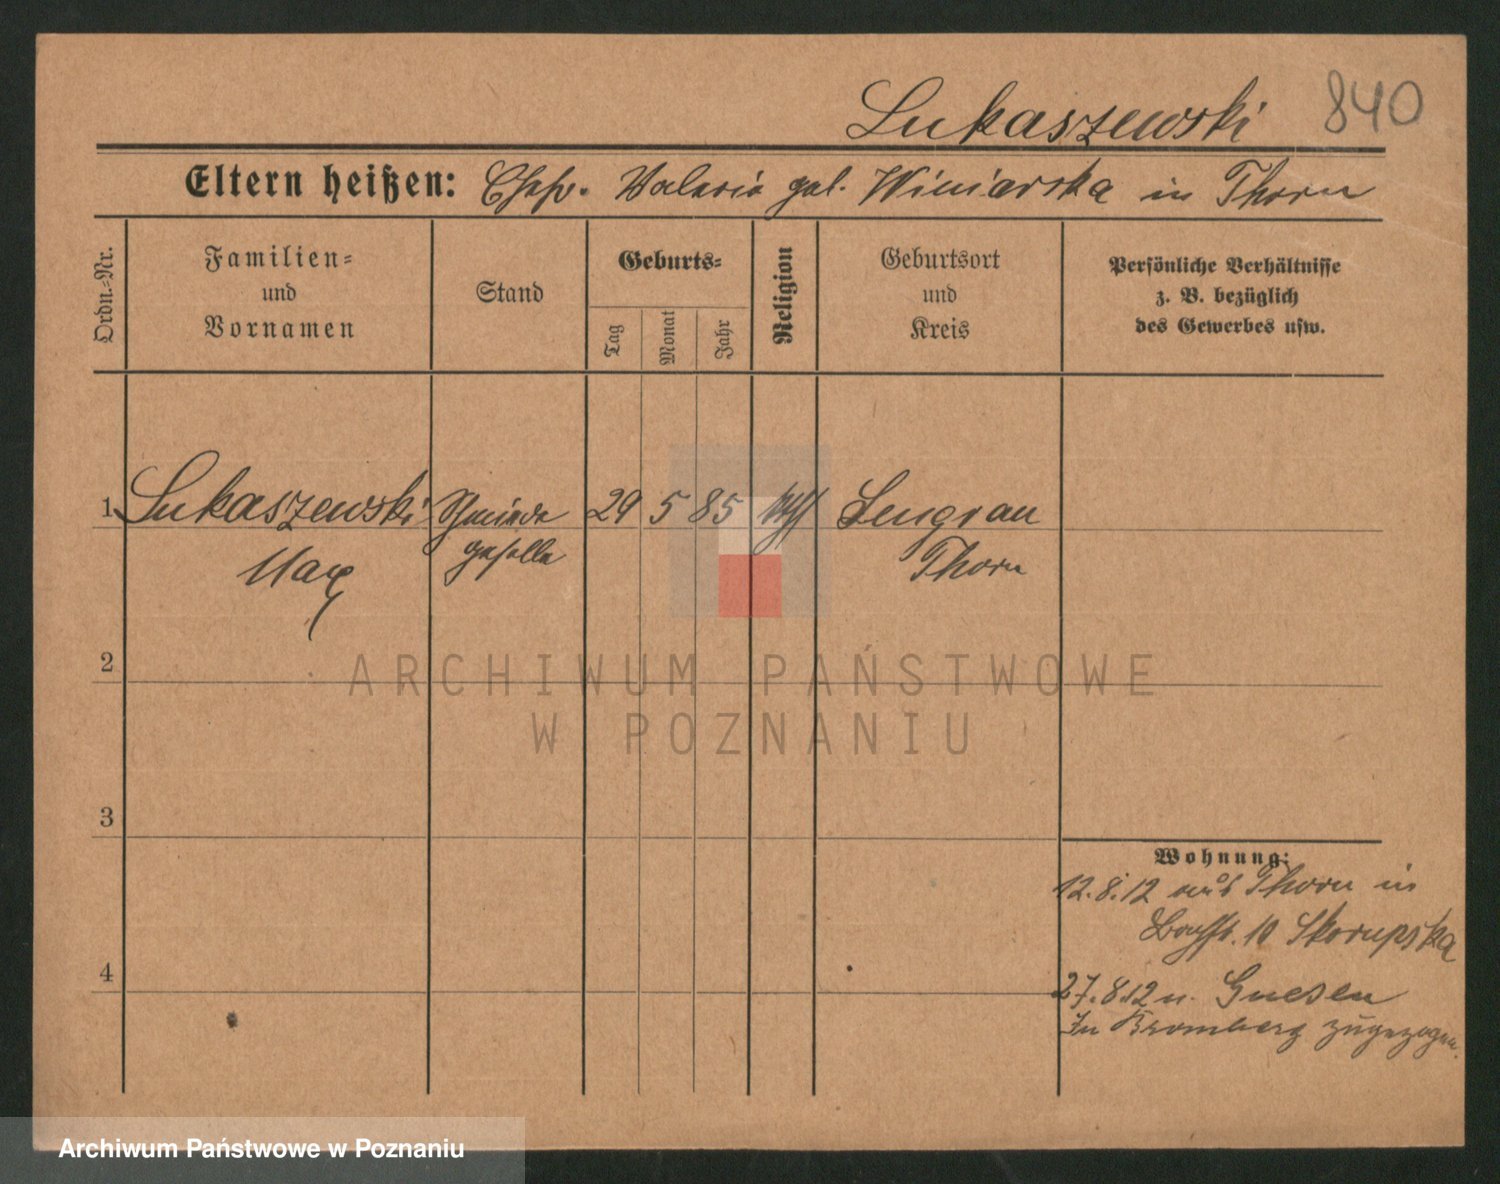 Lukaszewski 840
Eltern heißen: Ehefr. Valeria geb. Winiarska in Thorn
Ordn.=Nr.
Familien=
und
Vornamen
Stand
Geburts=
Tag
Monat
Jahr
Religion
Geburtsort
und
Kreis
Persönliche Verhältnisse
z. B. bezüglich
des Gewerbes usw.
1 Lukaszewski Schmiede 29 5 85 kath Lengrau
Max geselle Thorn
2
3
4
Wohnung:
12.8.12 aus Thorn in
10 Skorupska
27.8.12 n. Gnesen
In Bromberg zugezogen.
ARCHIWUM PAŃSTWOWE
W POZNANIU
Archiwum Państwowe w Poznaniu